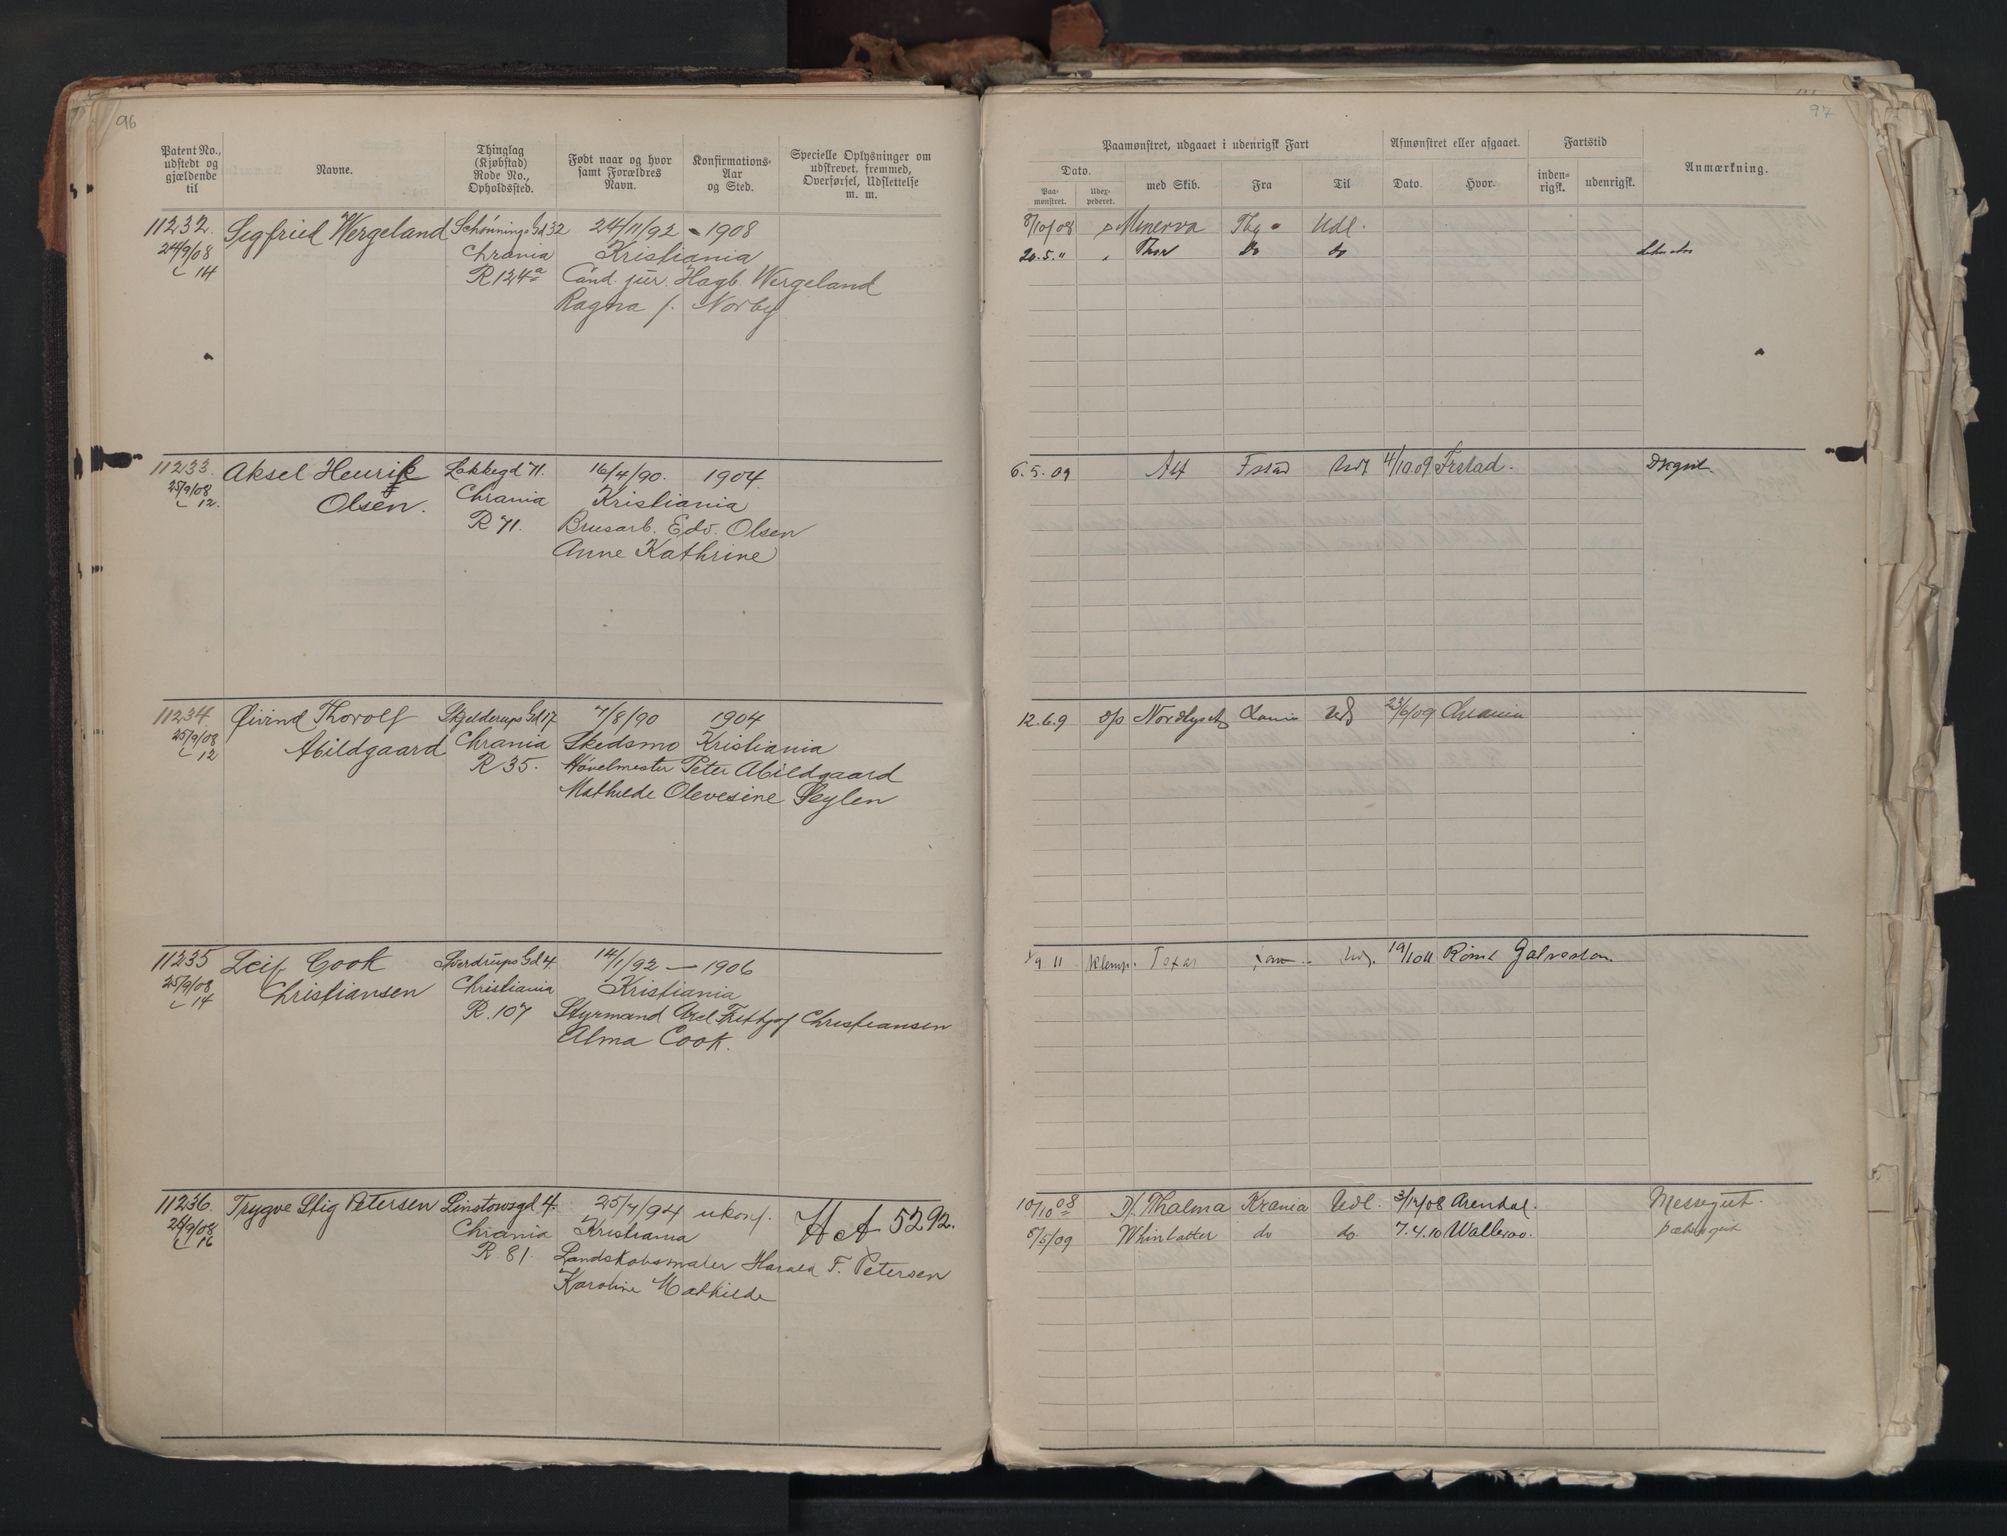 96
Patent No., udstedt og gjældende til
Navne.
Thinglag (Kjøbstad) Rode No., Opholdssted.
Født naar og hvor samt Forældres Navn.
Konfirmations-Aar og Sted.
Specielle Oplysninger om udskrevet, fremmed, Overførsel, Udslettelse m. m.
11232. Sigfried Wergeland Schønnings Gd 32 24/11/92 - 1908
24/9/08 Chrania Kristiania
14 R 124a Cand. jur. Hagb. Wergeland
Ragna f. Norby
11233. Aksel Henrik Lakkegd 71. 16/4/90. 1904.
25/9/08 Olsen. Chrania Kristiania
12. R 71. Brusarb. Edv. Olsen
Anne Kathrine
11234. Øivind Thorolf Skjelderups Gd 17 7/8/90 1904
25/9/08 Abildgaard Chrania Skedsmo Kristiania
12 R 35. Høvelmester Peter Abildgaard
Mathilde Olevesine
11235 Leif Cook Sverdrups Gd 4. 14/1/92 — 1906
25/9/08 Christiansen Christiania Kristiania
14 R. 107 Styrmand Axel Frithjof Christiansen
Alma Cook.
11236. Trygve Stig Petersen Linstowsgd 4. 25/7/94 ukonf. H A 5292.
Chrania Kristiania
16 R. 81. Landskabsmaler Harald F. Petersen
Karoline Mathilde
97
Paamønstret, udgaaet i udenrigsk Fart
Afmønstret eller afgaaet.
Fartstid
Anmærkning.
Dato.
Paa-mønstret.
Udex-pederet.
med Skib.
Fra
Til
Dato.
Hvor.
inden-rigsk.
udenrigsk.
8/10/08 Minerva Tbg Udl.
20.5." Thor do do
6.5.09 Alf Fstad Udl 4/10 09 Frstad.
12.6.9 Nordlyset Udl 23/6/09 Chrania
9 11 Klemp. Texas Udl. 19/10 11 Rømt Galveston
10/10 08 D/ Thalma Krania Udl. 3/12/08 Arendal. Messegut.
8/5/09 Whinlatter do do. 7.4.10 Walleroo.